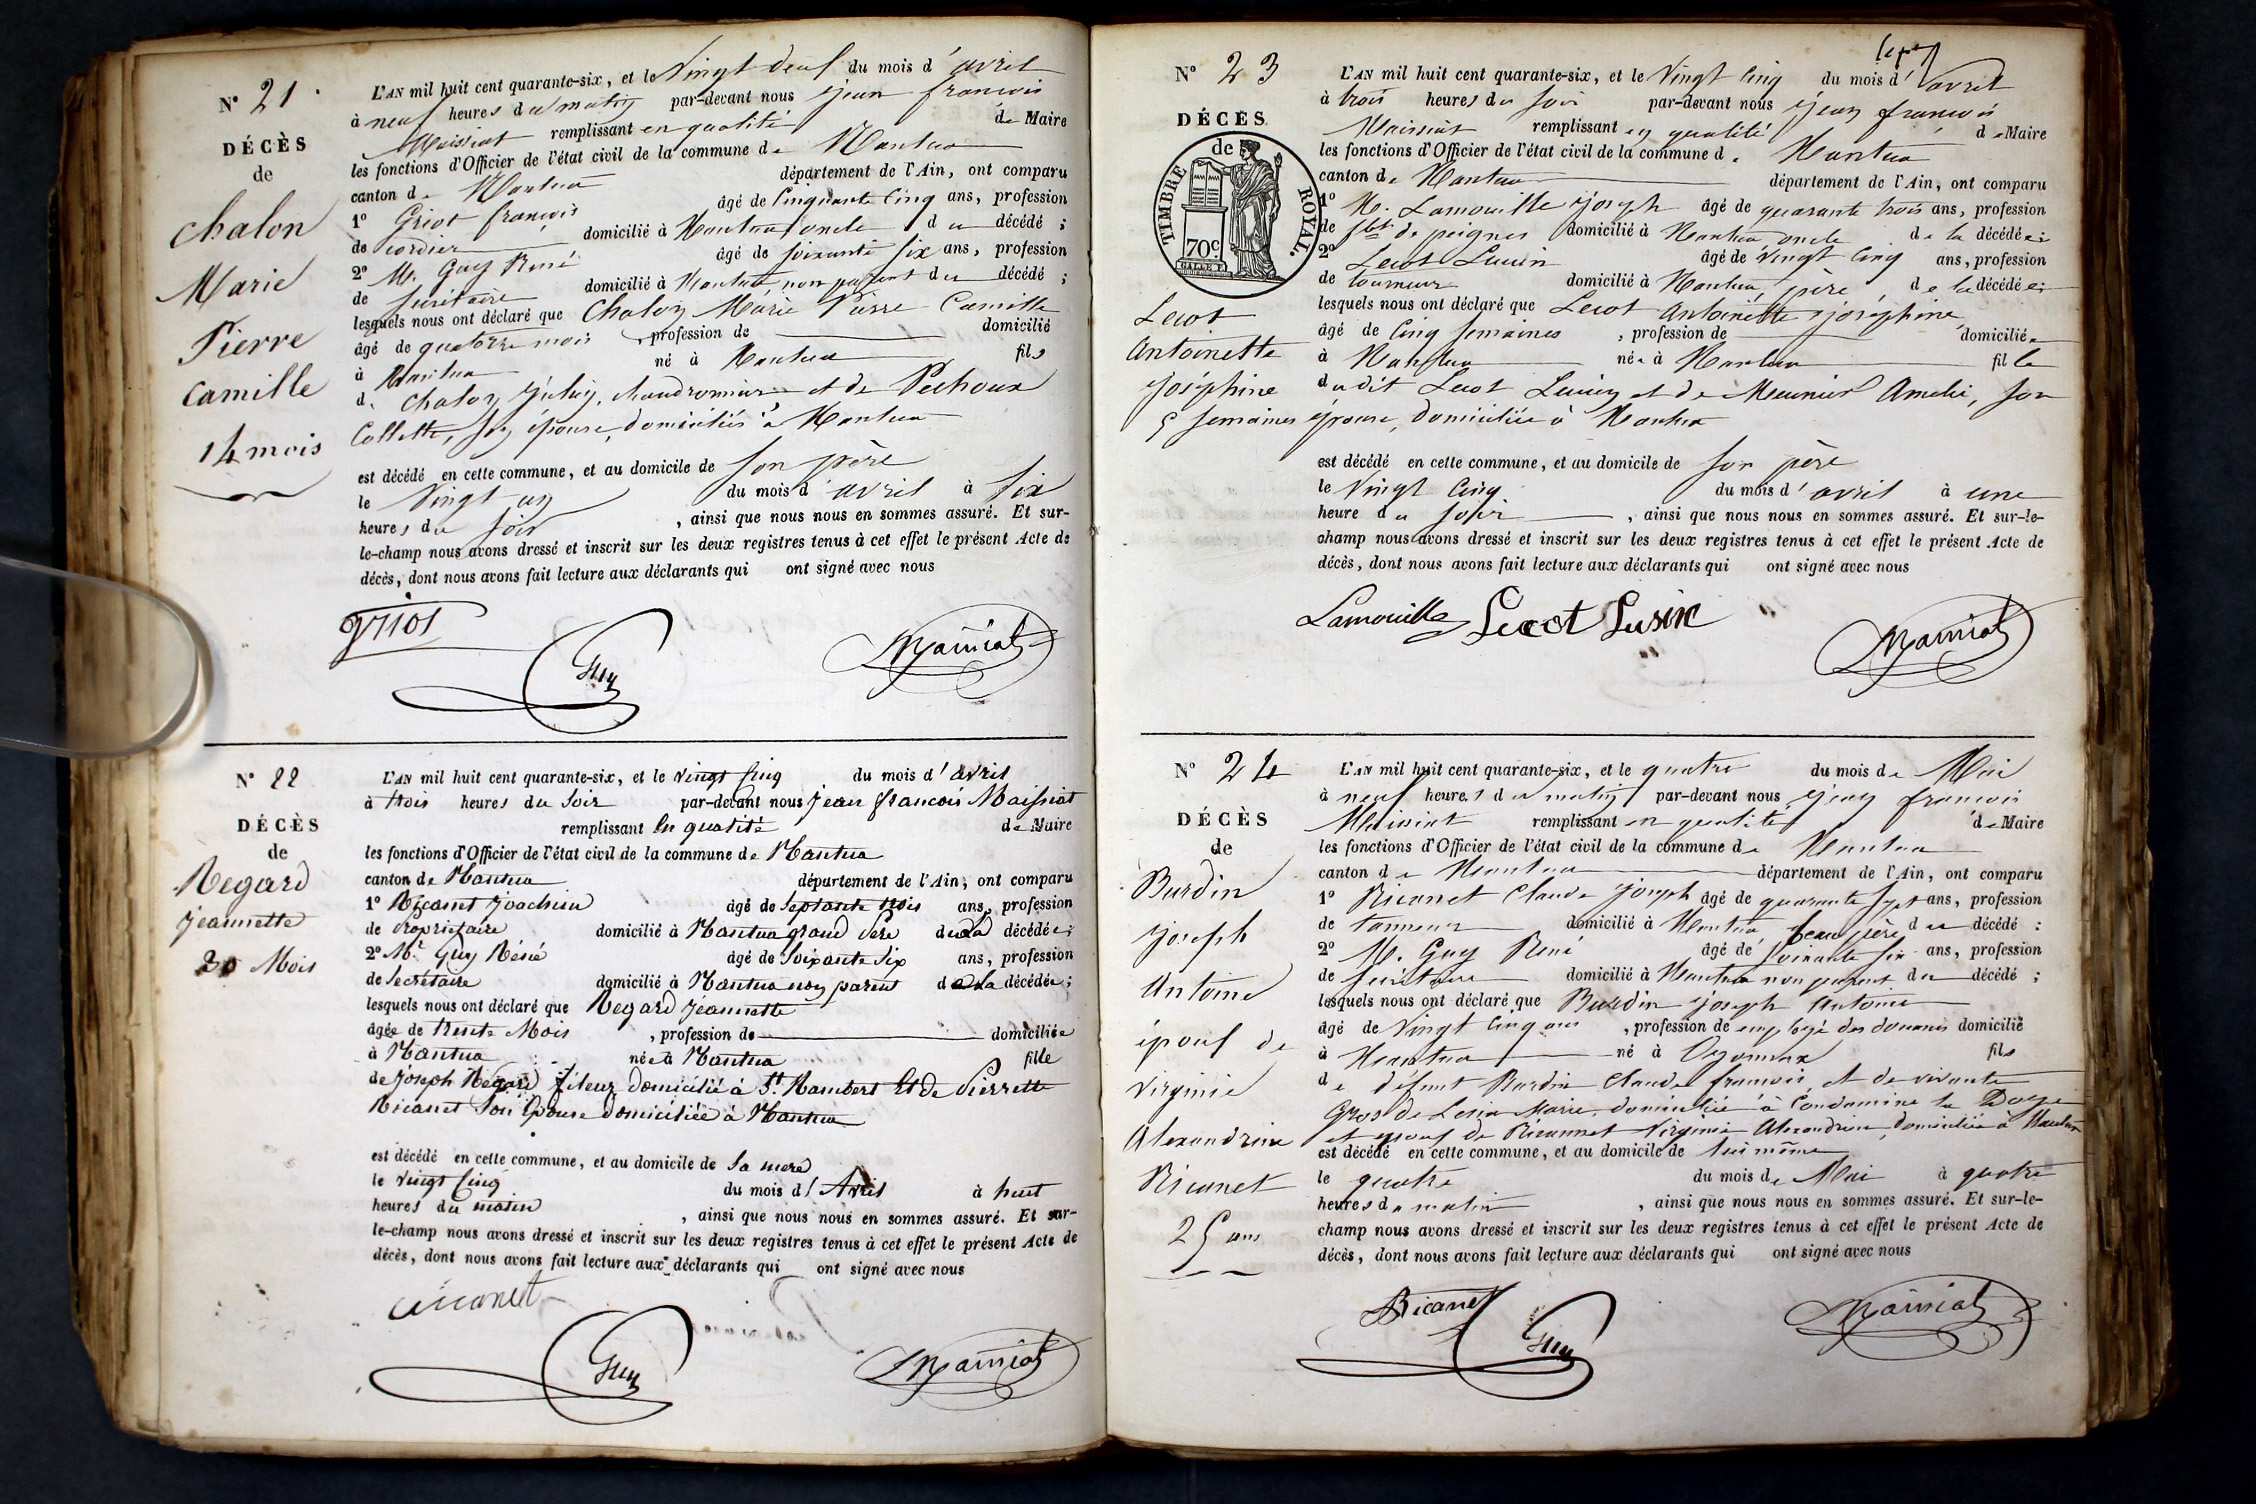 N° 21
DÉCÈS
de
Chalon
Marie
Pierre
Camille
14 mois
L'AN mil huit cent quarante-six, et le Vingt deux du mois d'avril
à neuf heures du matin par-devant nous Jean françois
Maissiat remplissant en qualité de Maire
les fonctions d'Officier de l'état civil de la commune de Nantua
canton de Nantua département de l'Ain, ont comparu
1° Griot françois âgé de Cinquante Cinq ans, profession
de cordier domicilié à Nantua oncle du décédé ;
2° M. Guy René âgé de soixante six ans, profession
de secrétaire domicilié à Nantua non parent du décédé ;
lesquels nous ont déclaré que Chalon Marie Pierre Camille
âgé de quatorze mois, profession de domicilié
à Nantua né à Nantua fils
de Chalon Julien, chaudronnier et de Pechoux
Collette, son épouse, domiciliés à Nantua
est décédé en cette commune, et au domicile de son père
le Vingt un du mois d'avril à six
heures du soir, ainsi que nous nous en sommes assuré. Et sur-
le-champ nous avons dressé et inscrit sur les deux registres tenus à cet effet le présent Acte de
décès, dont nous avons fait lecture aux déclarants qui ont signé avec nous
griot
Guy
Maissiat
N° 22
DÉCÈS
de
Regard
Jeannette
30 Mois
L'AN mil huit cent quarante-six, et le vingt cinq du mois d'avril
à trois heures du soir par-devant nous Jean françois Maissiat
remplissant en qualité de Maire
les fonctions d'Officier de l'état civil de la commune de Nantua
canton de Nantua département de l'Ain, ont comparu
1° Ricanet Joachim âgé de septante trois ans, profession
de propriétaire domicilié à Nantua grand père de la décédée ;
2° Mr Guy Réné âgé de soixante six ans, profession
de secrétaire domicilié à Nantua non parent de la décédée ;
lesquels nous ont déclaré que Regard Jeannette
âgée de trente Mois, profession de domiciliée
à Nantua née à Nantua fille
de Joseph Regard fileur domicilié à St. Rambert Et de Pierrette
Ricanet son Epouse domiciliée à Nantua
est décédé en cette commune, et au domicile de sa mere
le vingt cinq du mois d'Avril à huit
heures du matin, ainsi que nous nous en sommes assuré. Et sur-
le-champ nous avons dressé et inscrit sur les deux registres tenus à cet effet le présent Acte de
décès, dont nous avons fait lecture aux déclarants qui ont signé avec nous
Ricanet
Guy
Maissiat
N° 23
DÉCÈS
de
TIMBRE ROYAL.
70c.
Lecot
Antoinette
Joséphine
5 semaines
L'AN mil huit cent quarante-six, et le Vingt cinq du mois d'avril
à trois heures du soir par-devant nous Jean françois
Maissiat remplissant en qualité de Maire
les fonctions d'Officier de l'état civil de la commune de Nantua
canton de Nantua département de l'Ain, ont comparu
1° M. Lamouille Joseph âgé de quarante trois ans, profession
de fbt de peignes domicilié à Nantua oncle de la décédée ;
2° Lecot Lucien âgé de Vingt cinq ans, profession
de tourneur domicilié à Nantua, père, de la décédée ;
lesquels nous ont déclaré que Lecot Antoinette Joséphine
âgé de Cinq semaines, profession de domiciliée
à Nantua née à Nantua fille
dudit Lecot Lucien et de Meunier Amelie, son
épouse, domiciliée à Nantua
est décédé en cette commune, et au domicile de son père
le Vingt cinq du mois d'avril à une
heure du soir, ainsi que nous nous en sommes assuré. Et sur-le-
champ nous avons dressé et inscrit sur les deux registres tenus à cet effet le présent Acte de
décès, dont nous avons fait lecture aux déclarants qui ont signé avec nous
Lamouille
Lecot Lusin
Maissiat
N° 24
DÉCÈS
de
Burdin
Joseph
Antoine
époux de
Virginie
Alexandrine
Ricanet
25 ans
L'AN mil huit cent quarante-six, et le quatre du mois de Mai
à neuf heures du matin par-devant nous Jean françois
Maissiat remplissant en qualité de Maire
les fonctions d'Officier de l'état civil de la commune de Nantua
canton de Nantua département de l'Ain, ont comparu
1° Ricanet Claude Joseph âgé de quarante sept ans, profession
de tanneur domicilié à Nantua beau père du décédé ;
2° M. Guy René âgé de soixante six ans, profession
de secrétaire domicilié à Nantua non parent du décédé ;
lesquels nous ont déclaré que Burdin Joseph Antoine
âgé de Vingt cinq ans, profession de employé des douanes domicilié
à Nantua né à Oyonnax fils
de défunt Burdin Claude françois, et de vivante
Gros de Marie, domiciliée à Condamine la Doye
et époux de Ricannet Virginie Alexandrine, domiciliée à Nantua
est décédé en cette commune, et au domicile de lui même
le quatre du mois de Mai à quatre
heures du matin, ainsi que nous nous en sommes assuré. Et sur-le-
champ nous avons dressé et inscrit sur les deux registres tenus à cet effet le présent Acte de
décès, dont nous avons fait lecture aux déclarants qui ont signé avec nous
Ricanet
Guy
Maissiat